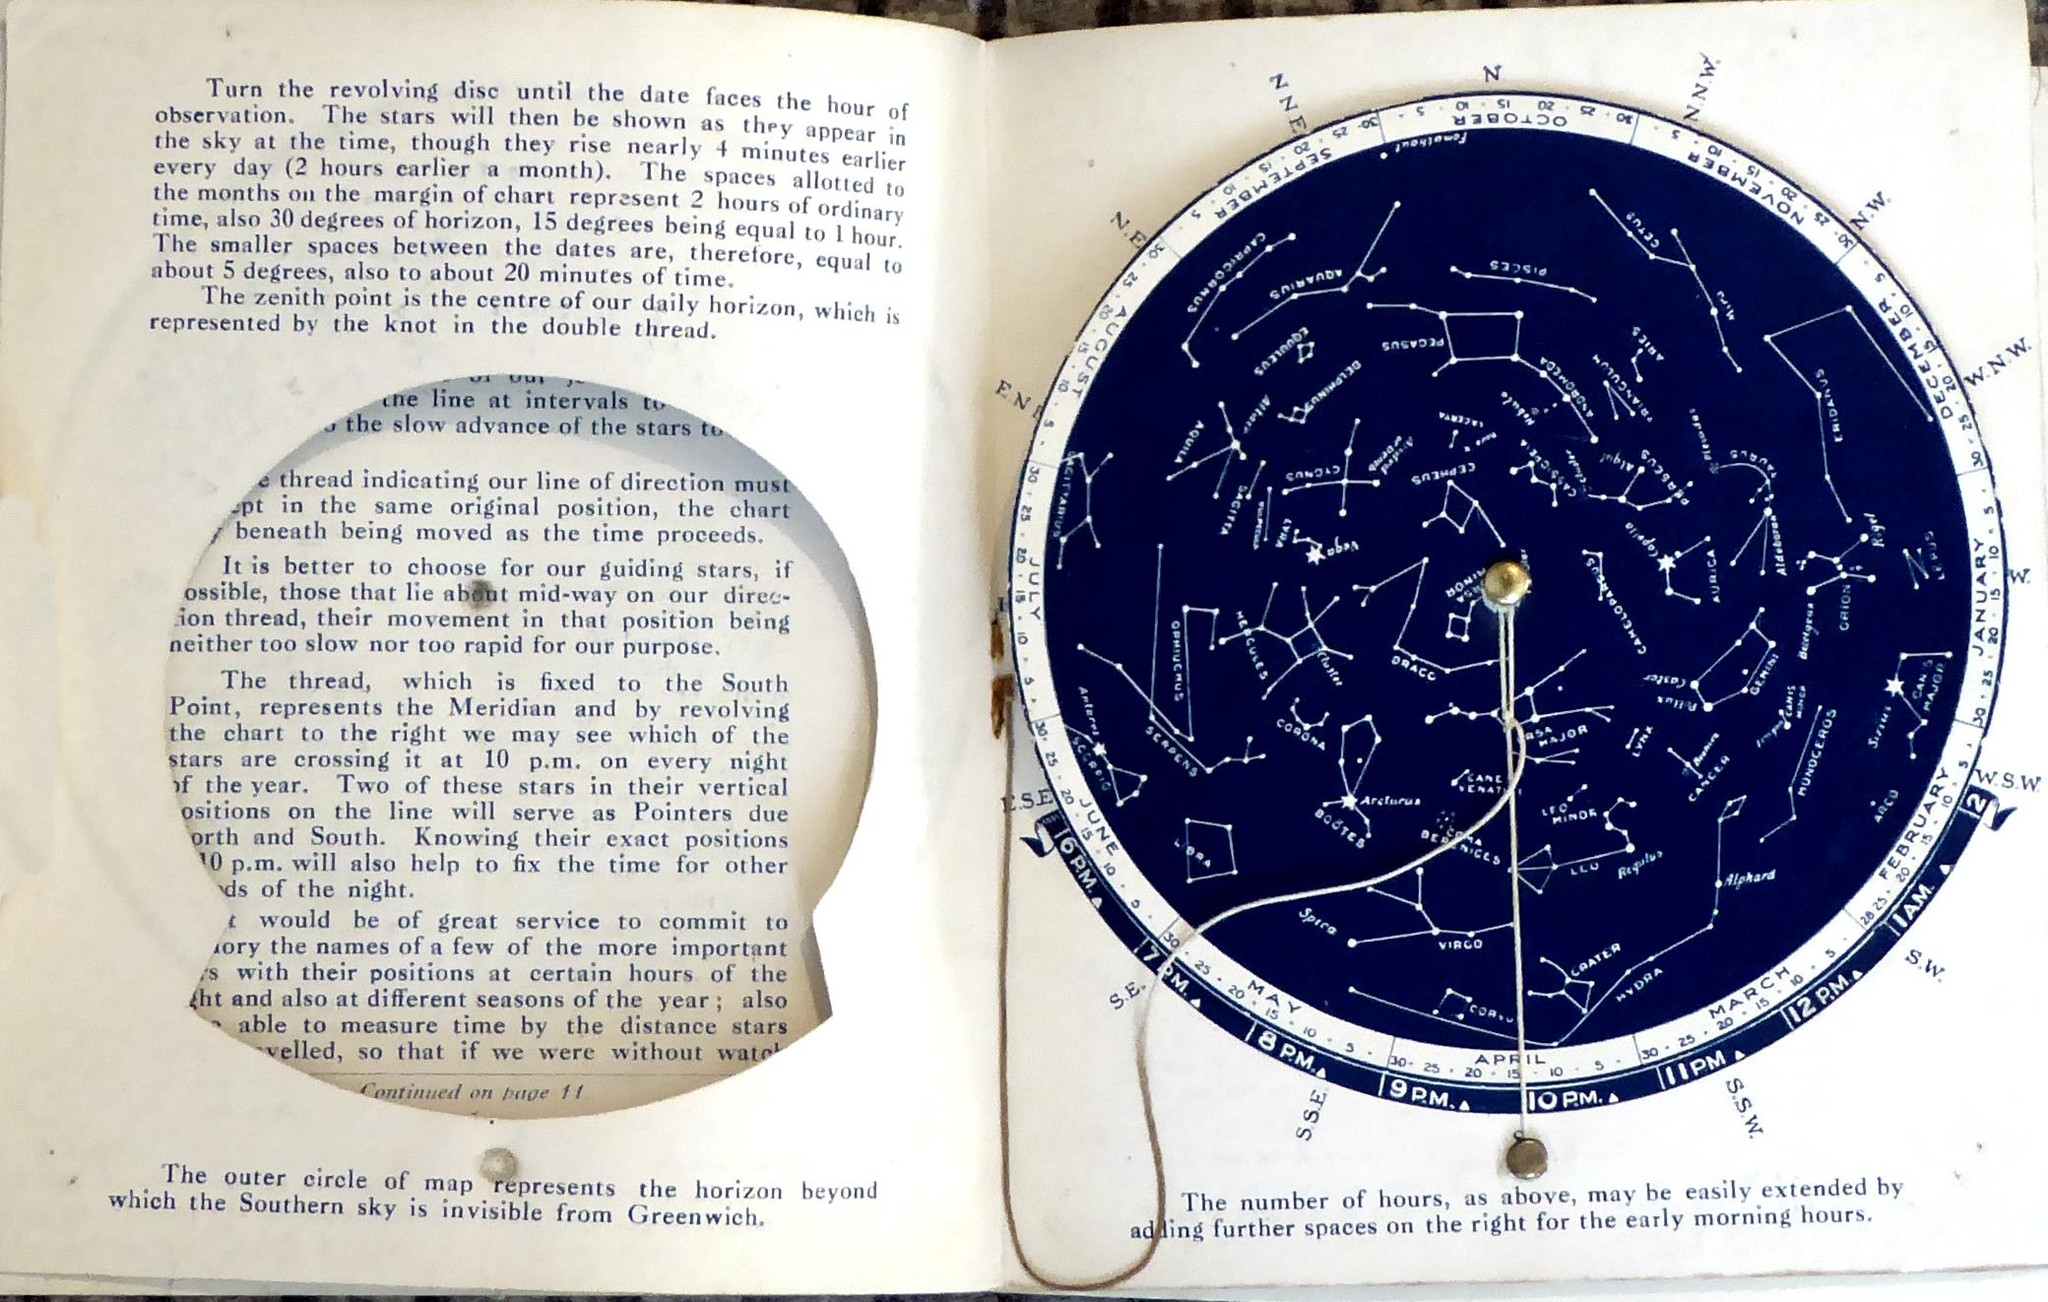 Turn the revolving disc until the date faces the hour of
observation. The stars will then be shown as they appear in
the sky at the time, though they rise nearly 4 minutes earlier
every day (2 hours earlier a month). The spaces allotted to
the months on the margin of chart represent 2 hours of ordinary
time, also 30 degrees of horizon, 15 degrees being equal to 1 hour.
The smaller spaces between the dates are, therefore, equal to
about 5 degrees, also to about 20 minutes of time.
The zenith point is the centre of our daily horizon, which is
represented by the knot in the double thread.
the line at intervals to
the slow advance of the stars to
thread indicating our line of direction must
in the same original position, the chart
beneath being moved as the time proceeds.
It is better to choose for our guiding stars, if
ossible, those that lie about mid-way on our direc-
ion thread, their movement in that position being
neither too slow nor too rapid for our purpose.
The thread, which is fixed to the South
Point, represents the Meridian and by revolving
the chart to the right we may see which of the
stars are crossing it at 10 p.m. on every night
of the year. Two of these stars in their vertical
ositions on the line will serve as Pointers due
orth and South. Knowing their exact positions
10 p.m. will also help to fix the time for other
ds of the night.
t would be of great service to commit to
ory the names of a few of the more important
s with their positions at certain hours of the
ht and also at different seasons of the year; also
able to measure time by the distance stars
velled, so that if we were without watch
Continued on page 11
The outer circle of map represents the horizon beyond
which the Southern sky is invisible from Greenwich.
N
N.N.W.
N.W.
W.N.W.
W.
W.S.W.
S.W.
S.S.W.
S.S.E.
S.E.
E.S.E
E.N.E
N.E
N.N.E
OCTOBER
NOVEMBER
DECEMBER
JANUARY
FEBRUARY
MARCH
APRIL
MAY
JUNE
JULY
AUGUST
SEPTEMBER
6 P.M.
7 P.M.
8 P.M.
9 P.M.
10 P.M.
11 P.M
12 P.M.
1 A.M.
2
Fomalhaut
CETUS
Mira
PISCES
AQUARIUS
CAPRICORNUS
EQUULEUS
DELPHINUS
PEGASUS
ANDROMEDA
Nebula
TRIANGULUM
ARIES
ERIDANUS
AQUILA
Altair
SAGITTA
CYGNUS
LACERTA
CEPHEUS
CASSIOPEIA
Cluster
Algol
PERSEUS
Pleiades
TAURUS
Aldebaran
SAGITTARIUS
LYRA
Vega
Capella
AURICA
Rigel
ORION
Betelgeux
LEPUS
OPHIUCHUS
HERCULES
Cluster
DRACO
URSA
MINOR
CAMELOPARDUS
Castor
Pollux
GEMINI
CANIS
MINOR
CANIS
MAJOR
Sirius
MONOCEROS
ARGO
Antares
SCORPIO
SERPENS
CORONA
URSA
MAJOR
LYNX
CANCER
Arcturus
BOÖTES
CANE
VENATI
COMA
BERENICES
LEO
MINOR
LEO
Regulus
Alphard
LIBRA
Spica
VIRGO
CORVU
CRATER
HYDRA
The number of hours, as above, may be easily extended by
adding further spaces on the right for the early morning hours.